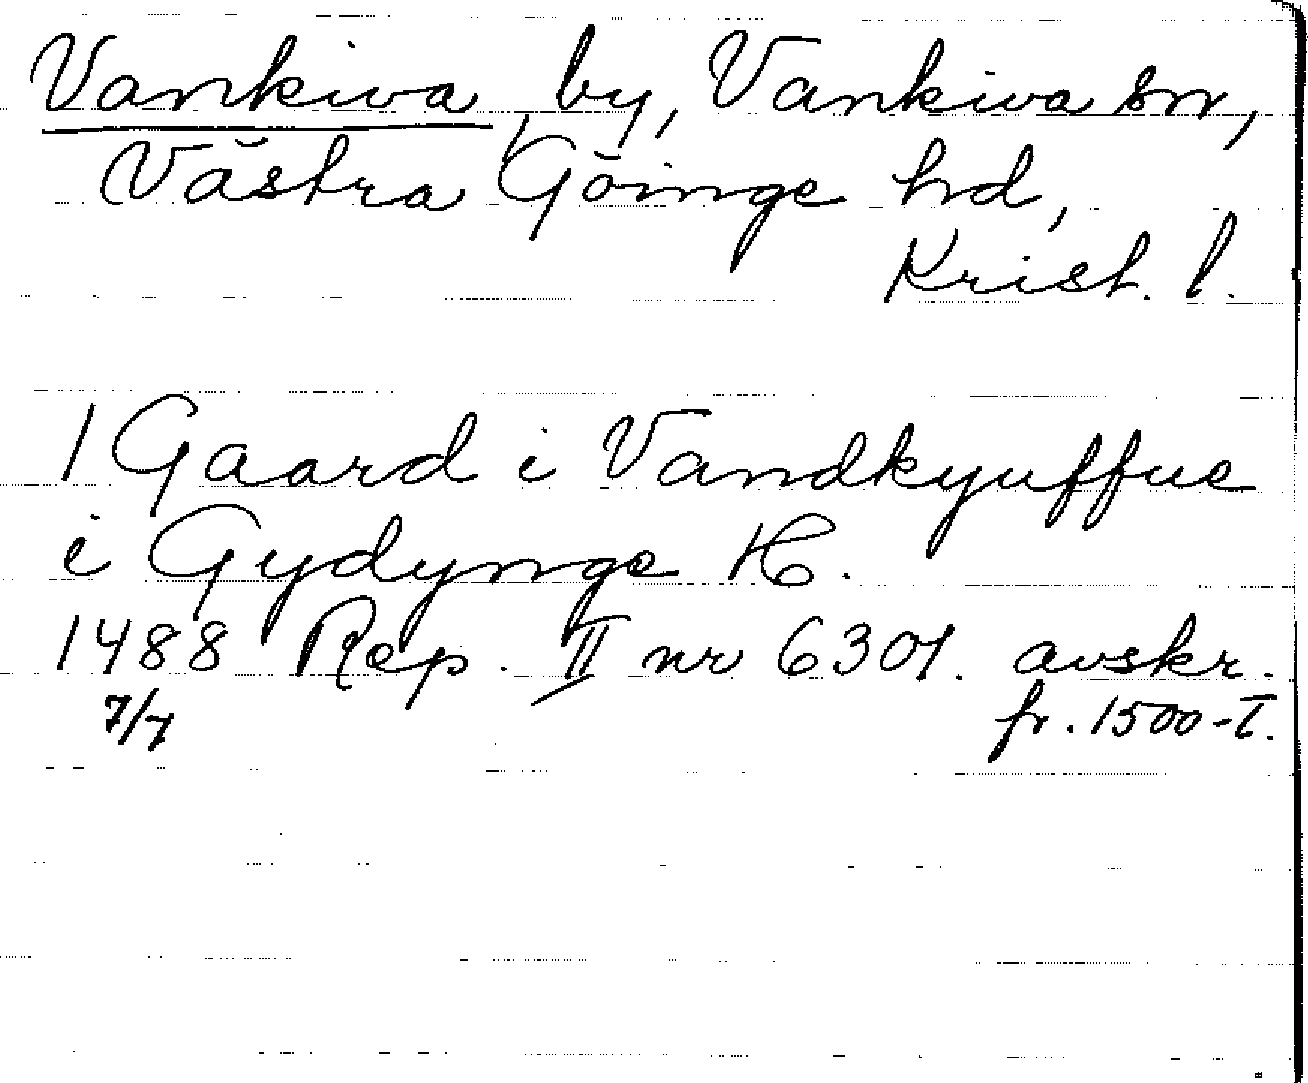 Vankiva by, Vankiva sn,
Västra Göinge hd,
Krist. l.
1 Gaard i Vandkyuffue
i Gydynge H.
1488 Rep. II nr 6301. avskr.
7/7 fr. 1500-T.